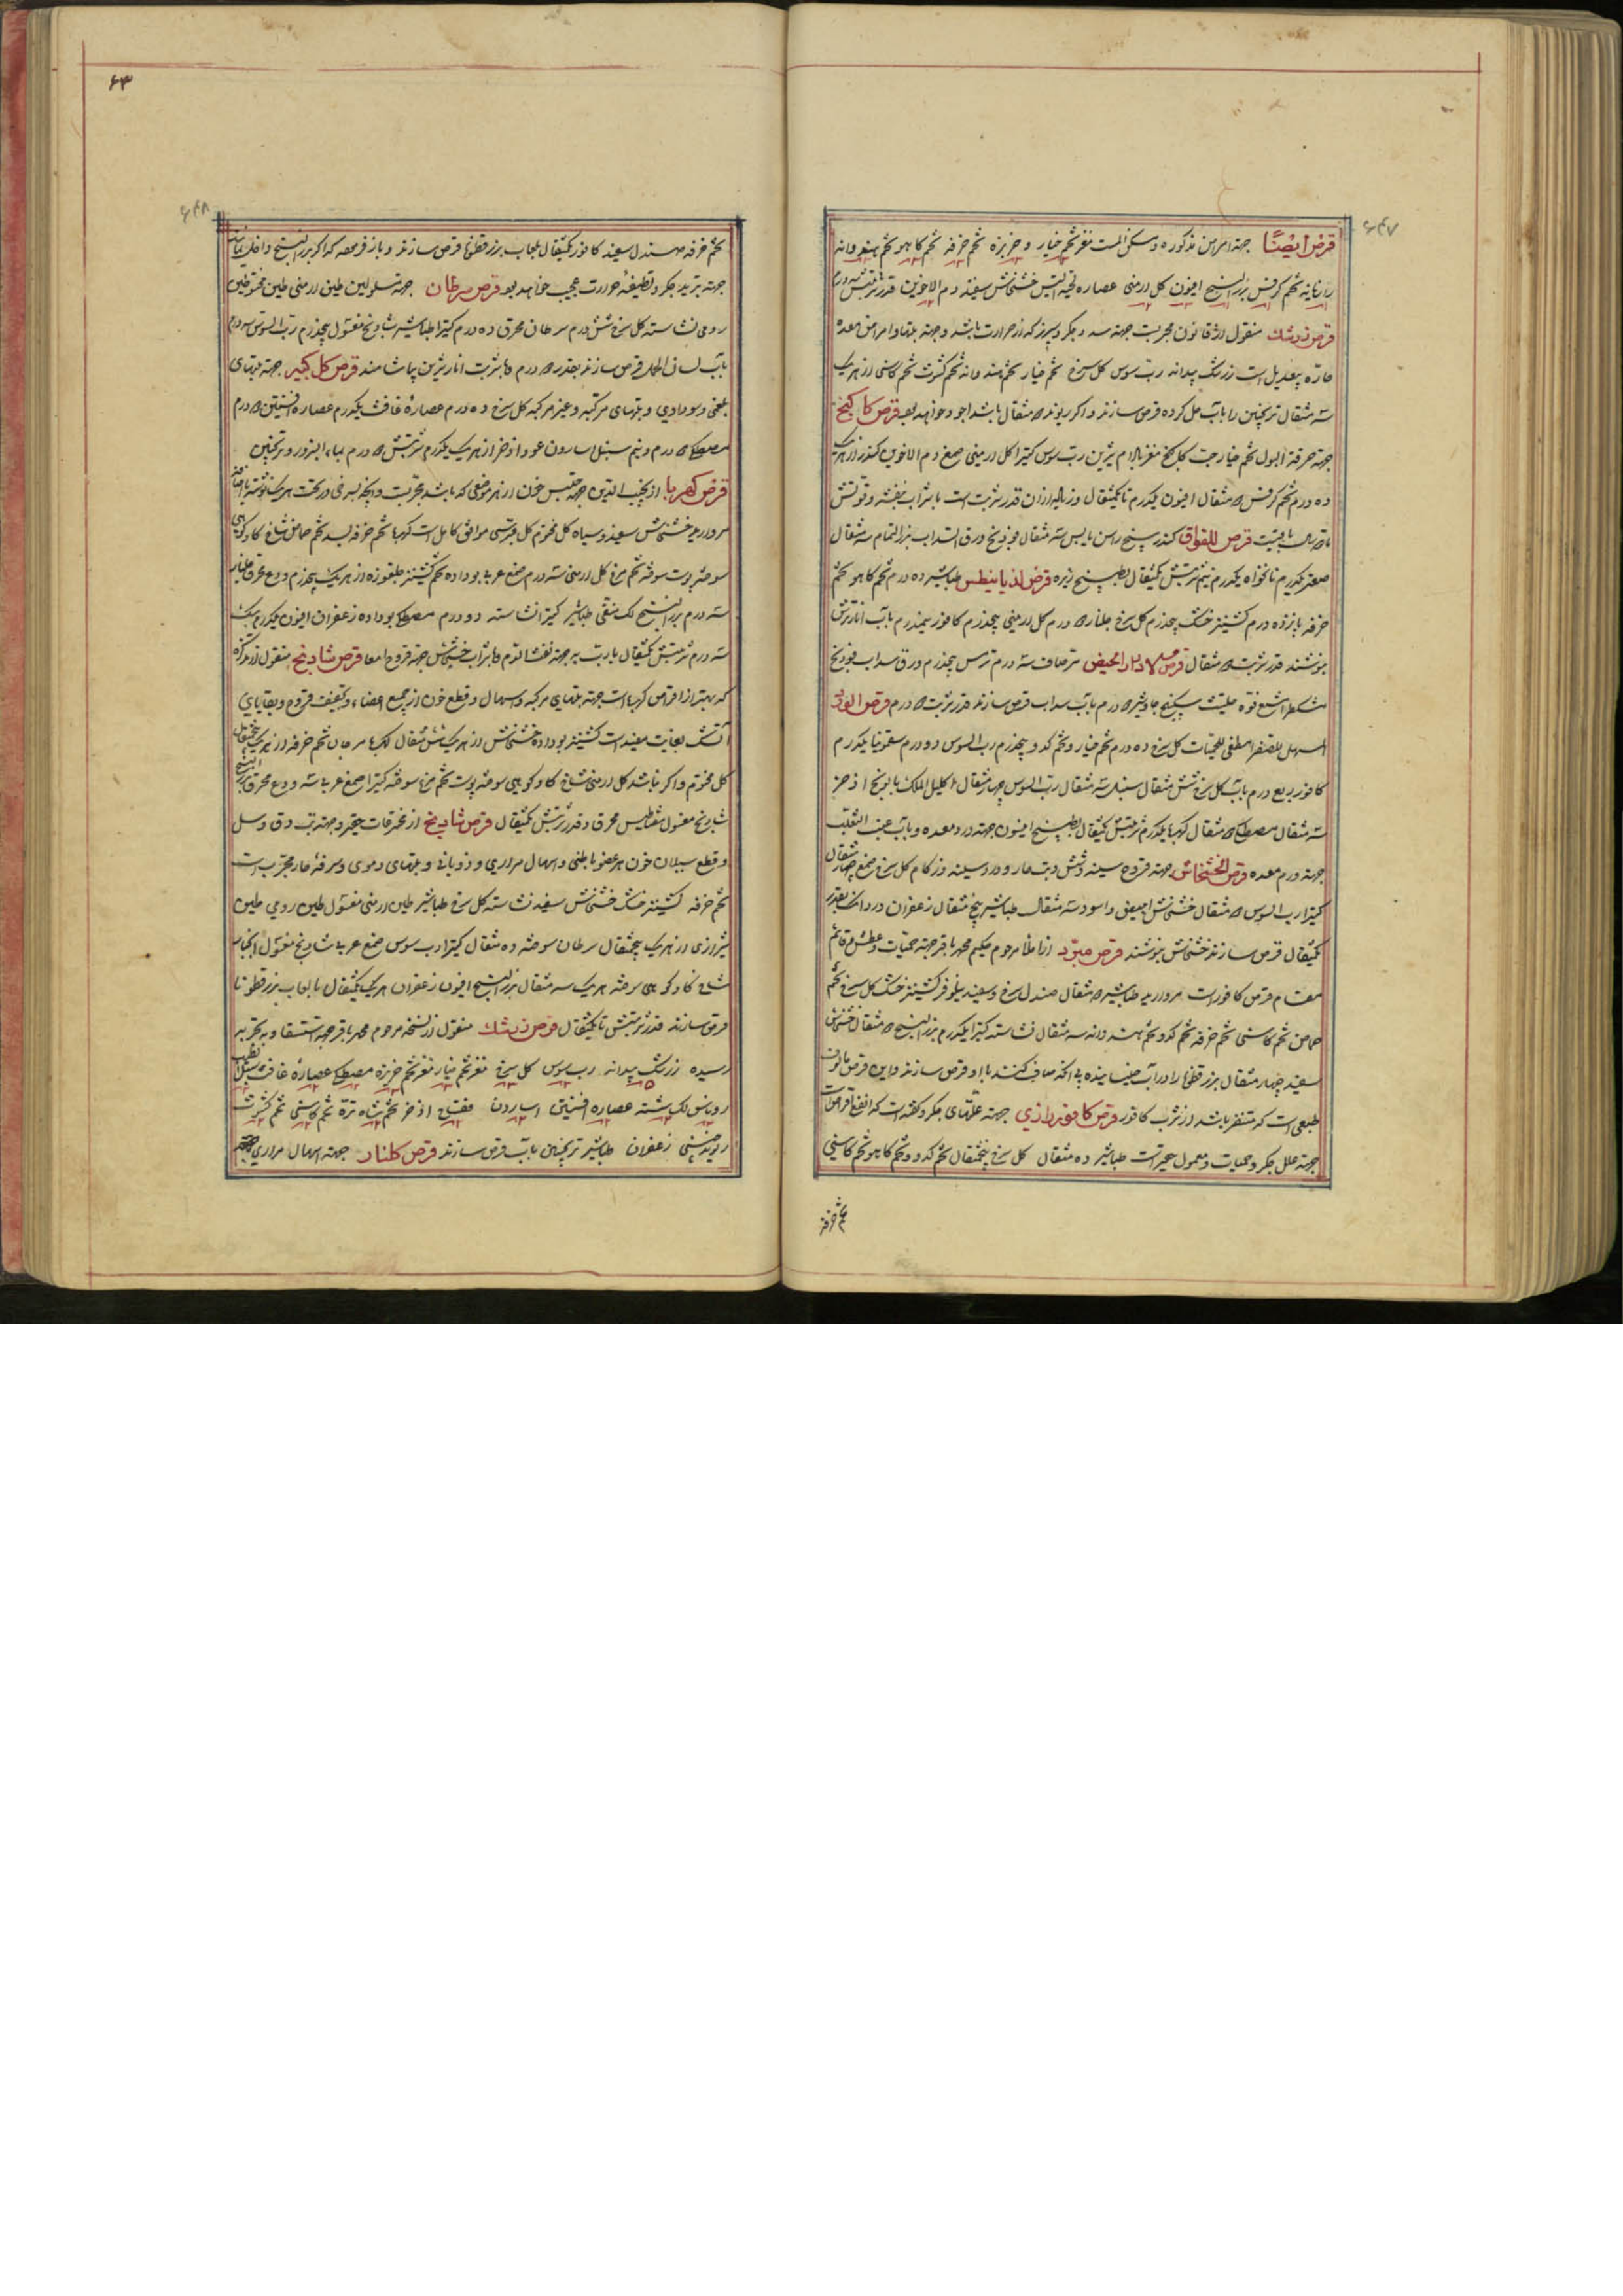 ۶۴۷
قرص ایضاً جهة امراض مذکوره و مسکن الم است مغز تخم خیار و خربزه تخم خرفه تخم کاهو تخم هندوانه
رازیانه تخم کرفس بزرالبنج افیون کل ارمنی عصاره لحیة التیس خشخاش سفید دم الاخوین قدر شربتش
قرص زرشک منقول از قانون مجربست جهة سده جکر و سپرز که از حرارت باشد و جهة تبها و امراض معده
حاره بیعدیل است زرشک بیدانه رب سوس کل سرخ تخم خیار تخم هندوانه تخم کشوث تخم کاسنی از هر یک
سه مثقال ترنجبین را بآب حل کرده قرص سازند و اکر ریوند مثقال باشد اجود خواهد بود قرص کاکنج
جهة حرقة البول تخم خیار حب کاکنج مغز بادام شیرین رب سوس کتیرا کل ارمنی صمغ دم الاخوین کندر از هر یک
ده درم تخم کرفس مثقال افیون یکدرم تا یکمثقال و زیاده از ان قدر شربت است با شراب بنفشه و قوتش
تا سال باقیست قرص للفواق کندر سنج راسن یابس سه مثقال فودنج ورق السداب بزرالنمام سه مثقال
صعتر یکدرم نانخواه یکدرم نیم شربتش یکمثقال بطبیخ زیره قرص لذیابیطس طباشیر ده درم تخم کاهو تخم
خرفه پانزده درم کشنیز خشک پنجدرم کل سرخ جلنار درم کل ارمنی پنجدرم کافور نیمدرم بآب انار ترش
بنوشند قدر شربت مثقال قرص لادرار الحیض مر صاف سه درم ترمس پنجدرم ورق سداب فودنج
مشکطرامشیع فوه حلتیت سکبینج جاوشیر درم بآب سداب قرص سازند قدر شربت درم قرص الورد
المسهل للصفرا مطفی للحمیات کل سرخ ده درم تخم خیار و تخم کدو پنجدرم رب السوس دو درم سقمونیا یکدرم
کافور ربع درم بآب کل سرخ شش مثقال سنبل سه مثقال رب السوس چهار مثقال اکلیل الملک بابونج اذخر
سه مثقال مصطکی مثقال کهربا یکدرم شربتش یکمثقال بطبیخ افیون جهة درد معده و بآب عنب الثعلب
جهة ورم معده قرص الخشخاش جهة قروح سینه و شش و تب حار و درد سینه و زکام کل سرخ صمغ چهار مثقال
کتیرا رب السوس مثقال خشخاش ابیض و اسود سه مثقال طباشیر پنج مثقال زعفران دردانک بقدر
یکمثقال قرص سازند خشخاش بنوشند قرص مبرد از املا مرحوم حکیم محمد باقر جهة حمیات و عطش و قائم
مقام قرص کافور است مروارید طباشیر مثقال صندل سرخ و سفید نیلوفر کشنیز خشک کل سرخ تخم
حماض تخم کاسنی تخم خرفه تخم کدو تخم هندوانه سه مثقال نشاسته کتیرا یکدرم بزرالبنج مثقال خشخاش
سفید چهار مثقال بزرقطونا را در آب خیسانیده بی آنکه صاف کنند با او قرص سازند و این قرص مألوف
طبعی است که متنفر باشد از شرب کافور قرص کافور رازی جهة علتهای جکر و کفته است که انفع اقراص است
جهة علل جکر و حمیات و معمول حقیر است طباشیر ده مثقال کل سرخ پنجمثقال تخم کدو و تخم کاهو تخم کاسنی
تخم خرفه
۶۳
۶۴۸
تخم خرفه صندل سفید کافور یکمثقال بلعاب بزرقطونا قرص سازند و باز فرموده که اکر بزرالبنج داخل نمایند
جهة تبرید جکر و تطفیه حرارت عجیب خواهد بود قرص سرطان جهة مسلولین طین ارمنی طین مختوم طین
رومی نشاسته کل سرخ شش درم سرطان محرق ده درم کتیرا طباشیر شادنج مغسول پنجدرم رب السوس سه درم
بآب لسان الحمل قرص سازند بقدر درم با شربت انار شیرین بیاشامند قرص کل کبیر جهة تبهای
بلغمی و سوداوی و تبهای مرکبه و غیر مرکبه کل سرخ ده درم عصاره غافث یکدرم عصاره افسنتین درم
مصطکی درم و نیم سنبل اسارون عود اذخر از هر یک یکدرم شربتش درم بماء البزور و ترنجبین
قرص کهربا از نجیب الدین جهة حبس خون از هر موضعی که باشد مجربست
مروارید خشخاش سفید و سیاه کل مختوم کل قبرسی موافق کامل است کهربا تخم خرفه بسد تخم حماض شاخ کاو کوهی
سوخته پوست سوخته تخم مرغ کل ارمنی سه درم صمغ عربی بو داده تخم کشنیز جلغوزه از هر یک پنجدرم ودع محرق
سه درم بزرالبنج لک منقی طباشیر کتیرا نشاسته دو درم مصطکی بو داده زعفران افیون یکدرم
سه درم شربتش یکمثقال با رب به جهة نفث الدم با شراب خشخاش جهة قروح امعا قرص شادنج منقول از تذکره
که بهتر از اقراص کهربا است جهة تبهای مرکبه و اسهال و قطع خون از جمیع اعضاء و تجفیف قروح و بقایای
آتشک بغایت مفید است کشنیز بو داده خشخاش از هر یک شش مثقال کهربا مرجان تخم خرفه از هر یک پنجمثقال
کل مختوم و اکر نباشد کل ارمنی شاخ کاو کوهی سوخته پوست تخم مرغ سوخته کتیرا صمغ عربی سه ودع محرق
شادنج مغسول مغناطیس محرق قدر شربتش یکمثقال قرص شادنج از مخترعات حقیر و جهة تب دق و سل
و قطع سیلان خون هر عضو باطنی و اسهال مراری و ذوبانی و تبهای دموی و سرفه حار مجربست
تخم خرفه کشنیز خشک خشخاش سفید نشاسته کل سرخ طباشیر طین ارمنی مغسول طین رومی طین
شیرازی از هر یک پنجمثقال سرطان سوخته ده مثقال کتیرا رب سوس صمغ عربی شادنج مغسول انجبار
شاخ کاو کوهی سوخته هر یک سه مثقال بزرالبنج افیون زعفران هر یک یکمثقال با لعاب بزرقطونا
قرص سازند قدر شربتش تا یکمثقال قرص زرشک منقول از نسخه مرحوم محمد باقر جهة استسقا و به تجربه
رسیده زرشک بیدانه رب سوس کل سرخ مغز تخم خیار مغز تخم خربزه مصطکی عصاره غافث سنبل
روناس لک شسته عصاره افسنتین اسارون فقاح اذخر تخم شاه تره تخم کاسنی تخم کشوث
ریوند چینی زعفران طباشیر ترنجبین بآب قرص سازند قرص کلنار جهة اسهال مراری